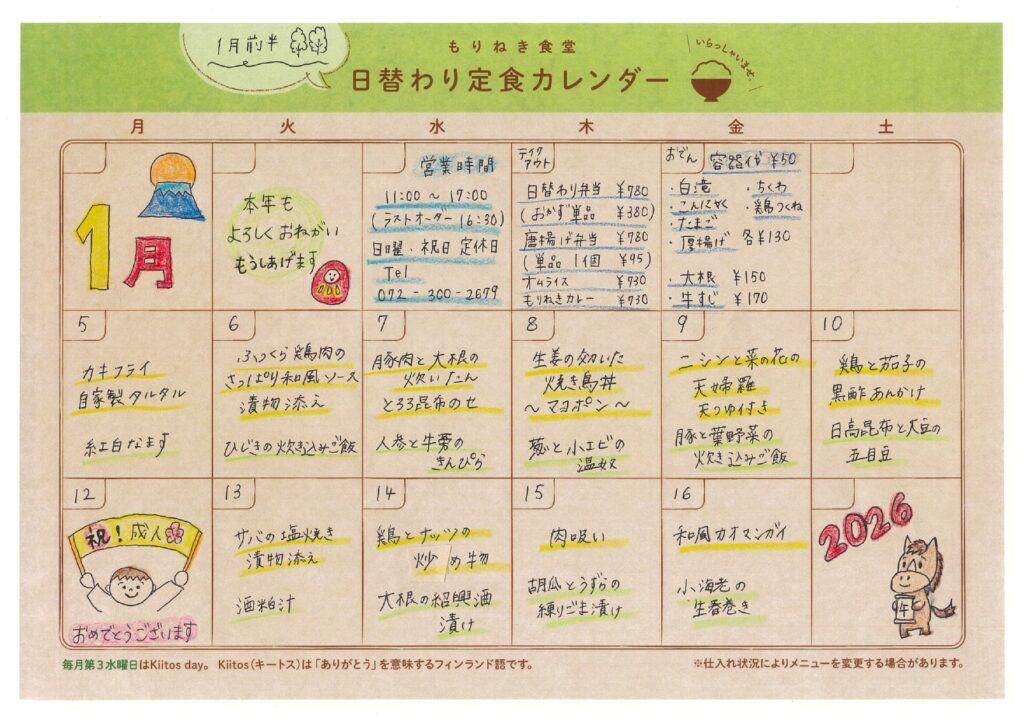 1月前半
もりねき食堂
日替わり定食カレンダー
いらっしゃいませ。
月 火 水 木 金 土
1月
本年も
よろしくおねがい
もうしあげます
営業時間
11:00 ~ 17:00
(ラストオーダー 16:30)
日曜、祝日 定休日
Tel
072-300-2679
テイク
アウト
日替わり弁当 ¥780
(おかず単品 ¥380)
唐揚げ弁当 ¥780
(単品 1個 ¥95)
オムライス ¥730
もりねきカレー ¥730
おでん 容器代 ¥50
・白滝 ・ちくわ
・こんにゃく ・鶏つくね
・たまご
・厚揚げ 各¥130
・大根 ¥150
・牛すじ ¥170
5
カキフライ
自家製タルタル
紅白なます
6
ふっくら鶏肉の
さっぱり和風ソース
漬物添え
ひじきの炊き込みご飯
7
豚肉と大根の
炊いたん
とろろ昆布のせ
人参と牛蒡の
きんぴら
8
生姜の効いた
焼き鳥丼
~マヨポン~
葱と小エビの
温奴
9
ニシンと菜の花の
天婦羅
天つゆ付き
豚と葉野菜の
炊き込みご飯
10
鶏と茄子の
黒酢あんかけ
日高昆布と大豆の
五目豆
12
祝!成人
おめでとうございます
13
サバの塩焼き
漬物添え
酒粕汁
14
鶏とナッツの
炒め物
大根の紹興酒
漬け
15
肉吸い
胡瓜とうずらの
練りごま漬け
16
和風カオマンガイ
小海老の
生春巻き
2026
午
毎月第3水曜日はKiitos day。 Kiitos(キートス)は「ありがとう」を意味するフィンランド語です。
※仕入れ状況によりメニューを変更する場合があります。